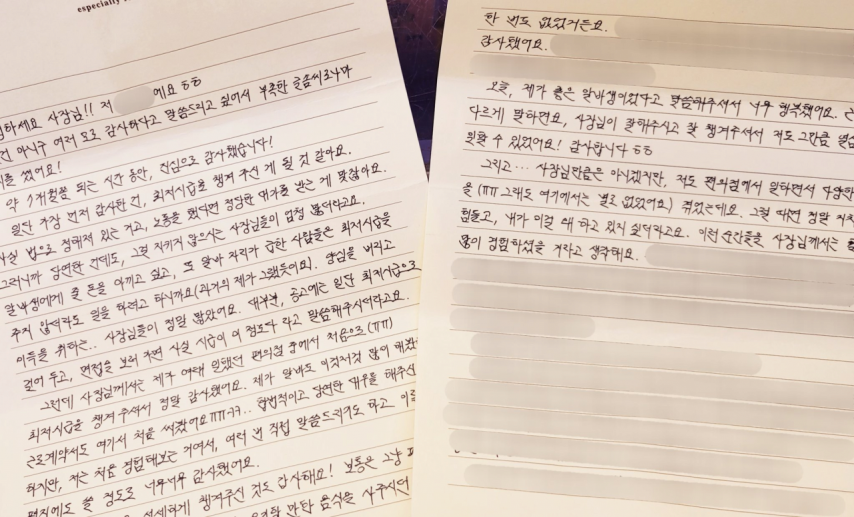 especially
하세요 사장님!! 저 예요 ㅎㅎ
건 아니구 여러 모로 감사하다고 말씀드리고 싶어서 부족한 글솜씨로나마
를 썼어요!
약 기간 동안, 진심으로 감사했습니다!
일단 가장 먼저 감사한 건, 최저시급을 챙겨 주신 게 될 것 같아요.
사실 법으로 정해져 있는 거고, 노동을 했다면 정당한 대가를 받는 게 맞잖아요.
그러니까 당연한 건데도, 그걸 지키지 않으시는 사장님들이 엄청 많더라고요.
알바생에게 줄 돈을 아끼고 싶고, 또 알바 자리가 급한 사람들은 최저시급을
주지 않더라도 일을 하려고 하니까요(과거의 제가 그랬듯이요). 양심을 버리고
이득을 취하는.. 사장님들이 정말 많았어요. 대부분, 공고에는 일단 최저시급으로
걸어 두고, 면접을 보러 가면 사실 시급이 이 정도다 라고 말씀해주시더라고요.
그런데 사장님께서는 제가 여태 일했던 편의점 중에서 처음으로(ㅠㅠ)
최저시급을 챙겨 주셔서 정말 감사했어요. 제가 알바도 이것저것 많이 해봤
근로계약서도 여기서 처음 써봤어요ㅠㅠㅋㅋ.. 합법적이고 당연한 대우를 해주신
하지만, 저는 처음 경험해보는 거여서, 여러 번 직접 말씀드리기도 하고 이
편지에도 쓸 정도로 너무너무 감사했어요.
세세하게 챙겨주신 것도 감사해요! 보통은 그냥
음식을 사주시던
한 번도 없었거든요.
감사했어요.
오늘, 제가 좋은 알바생이었다고 말씀해주셔서 너무 행복했어요.
다르게 말하면요, 사장님이 잘해주시고 잘 챙겨주셔서 저도 그만큼 열심
일할 수 있었어요! 감사합니다 ㅎㅎ
그리고... 사장님만큼은 아니겠지만, 저도 편의점에서 일하면서 다양한
을 (ㅠㅠ 그래도 여기에서는 별로 없었어요) 겪었는데요. 그럴 때면 정말 지치
힘들고, 내가 이걸 왜 하고 있지 싶더라고요. 이런 순간들을 사장님께서는
많이 경험하셨을 거라고 생각해요.